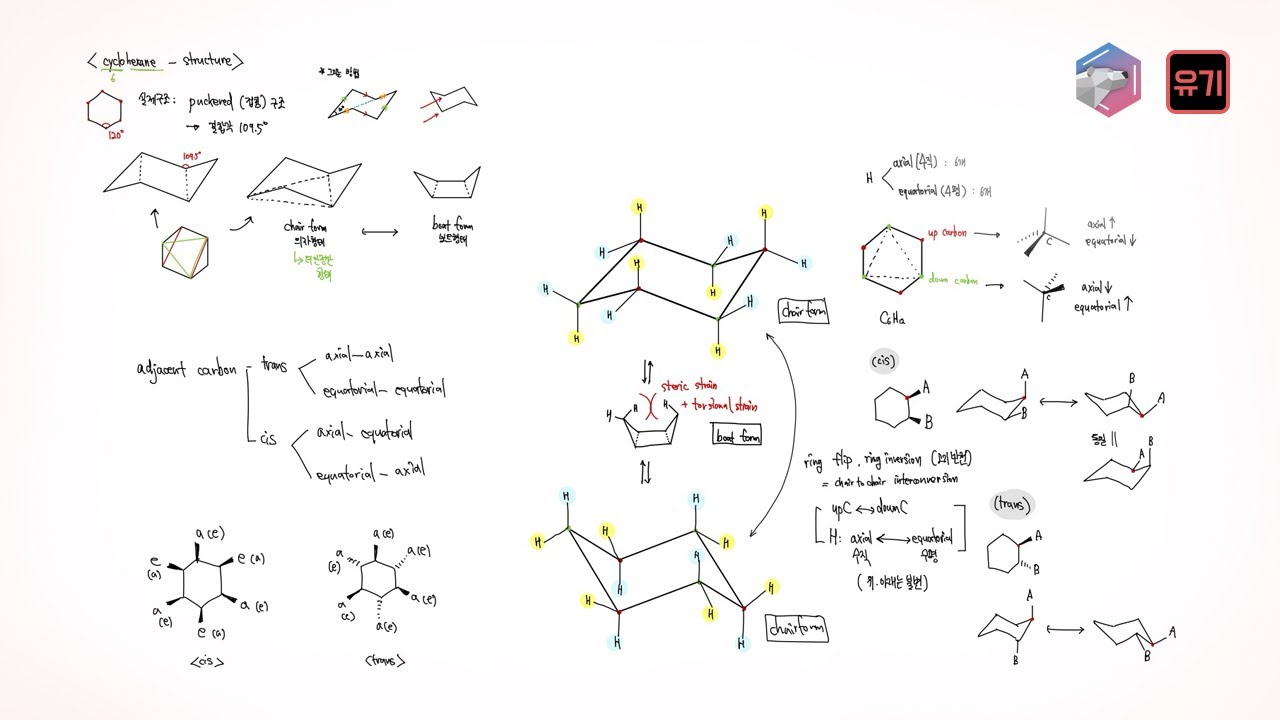 <cyclohexane - structure>
6
실제구조: puckered (접힌) 구조
→ 결합각 109.5°
120°
* 그리는 방법
109.5°
chair form
의자형태
↳ 더 안정한
형태
boat form
보트형태
adjacent carbon - trans
axial-axial
equatorial-equatorial
cis
axial-equatorial
equatorial-axial
a (e)
e (a)
a (e)
e (a)
a (e)
e (a)
<cis>
a (e)
a (e)
a (e)
a (e)
a (e)
a (e)
<trans>
H
H
H
H
H
H
H
H
H
H
H
H
chair form
steric strain
+ torsional strain
H
H
H
boat form
H
H
H
H
H
H
H
H
H
H
H
H
chair form
유기
H
axial (수직) : 6개
equatorial (수평) : 6개
up carbon →
C
axial ↑
equatorial ↓
down carbon →
C
axial ↓
equatorial ↑
(cis)
A
B
A
B
B
A
동일 ||
A
B
ring flip, ring inversion (고리 반전)
= chair to chair interconversion
up C ↔ down C
H: axial ↔ equatorial
수직 수평
(위, 아래는 불변)
(trans)
A
B
A
B
A
B